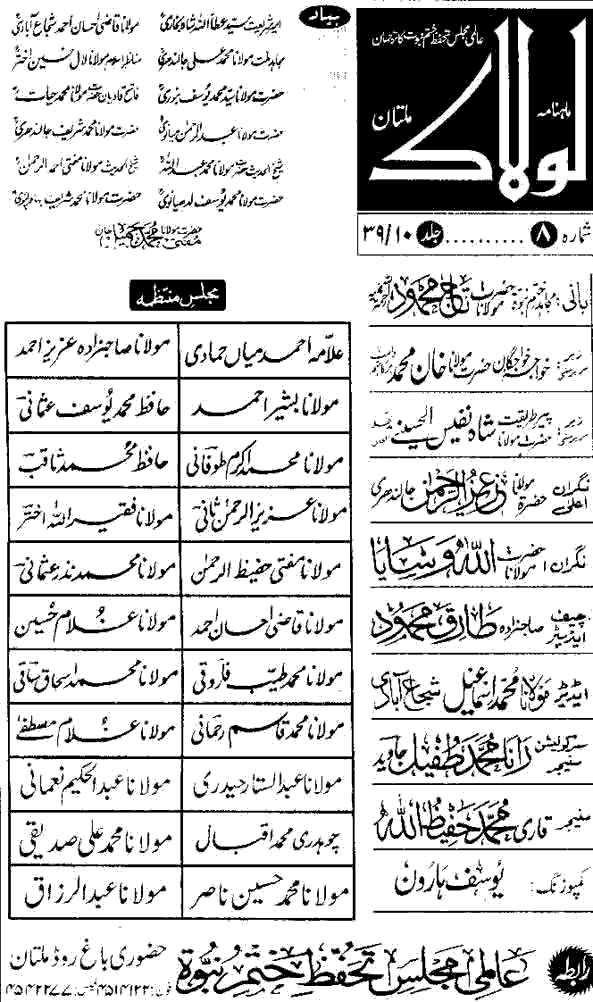 عالمی مجلس تحفظ ختم نبوت کا ترجمان
ماہنامہ
لولاک
ملتان
شمارہ ۸ .......... جلد ۳۹/۱۰
بانی: مجاہد ختم نبوۃ حضرت مولانا تاج محمود
زیر سرپرستی: خواجہ خواجگان حضرت مولانا خان محمد
زیر سرپرستی: پیر طریقت حضرت مولانا شاہ نفیس الحسینی
نگران اعلی: حضرۃ مولانا عزیز الرحمن جالندھری
نگران: حضرت مولانا اللہ وسایا
چیف ایڈیٹر: صاحبزادہ طارق محمود
ایڈیٹر: مولانا محمد اسماعیل شجاع آبادی
سرکولیشن منیجر: رانا محمد طفیل جاوید
منیجر: قاری محمد حفیظ اللہ
کمپوزنگ: یوسف ہارون
بیاد
امیر شریعت سید عطا اللہ شاہ بخاری مولانا قاضی احسان احمد شجاع آبادی
مجاہد ملت مولانا محمد علی جالندھری مناظر اسلام مولانا لال حسین اختر
حضرت مولانا سید محمد یوسف بنوری فاتح قادیان حضرت مولانا محمد حیات
حضرت مولانا عبدالرحمن میانوی حضرت مولانا محمد شریف جالندھری
شیخ الحدیث حضرت مولانا محمد عبداللہ شیخ الحدیث مولانا مفتی احمد الرحمن
حضرت مولانا محمد یوسف لدھیانوی حضرت مولانا محمد شریف بہاولپوری
حضرت مولانا مفتی محمد جمیل خان
مجلس منتظمہ
علامہ احمد میاں حمادی مولانا صاحبزادہ عزیز احمد
مولانا بشیر احمد حافظ محمد یوسف عثمانی
مولانا محمد اکرم طوفانی حافظ محمد ثاقب
مولانا عزیز الرحمن ثانی مولانا فقیر اللہ اختر
مولانا مفتی حفیظ الرحمن مولانا محمد نذر عثمانی
مولانا قاضی احسان احمد مولانا غلام حسین
مولانا محمد طیب فاروقی مولانا محمد اسحاق ساقی
مولانا محمد قاسم رحمانی مولانا غلام مصطفے
مولانا عبد الستار حیدری مولانا عبد الحکیم نعمانی
چوہدری محمد اقبال مولانا محمد علی صدیقی
مولانا محمد حسین ناصر مولانا عبد الرزاق
رابطہ
عالمی مجلس تحفظ ختم نبوۃ
حضوری باغ روڈ ملتان
فون: ۴۵۱۴۱۲۲ فیکس: ۴۵۴۲۲۷۷